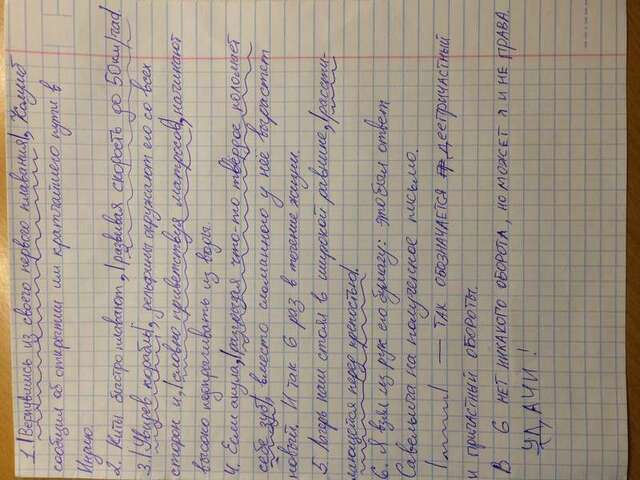 1. |Вернувшись из своего первого плавания|, Колумб
сообщил об открытии им кратчайшего пути в
Индию.
2. Киты быстро плавают, |развивая скорость до 50 км/час|
3. |Увидев корабль|, дельфины окружают его со всех
сторон и, |словно приветствуя матросов|, начинают
высоко выпрыгивать из воды.
4. Если акула, |разгрызая что-то твёрдое поломает
себе зуб|, вместо сломанного у неё вырастет
новый. И так 6 раз в течение жизни.
5. Лагерь наш стоял в широкой равнине, |рассти-
лающейся перед крепостью|.
6. Я взял из рук его бумагу: это был ответ
Савельича на полученное письмо.
|~~~~| — ТАК ОБОЗНАЧАЕТСЯ ДЕЕПРИЧАСТНЫЙ
И ПРИЧАСТНЫЙ ОБОРОТЫ.
В 6 НЕТ НИКАКОГО ОБОРОТА, НО МОЖЕТ Я И НЕ ПРАВА.
УДАЧИ!